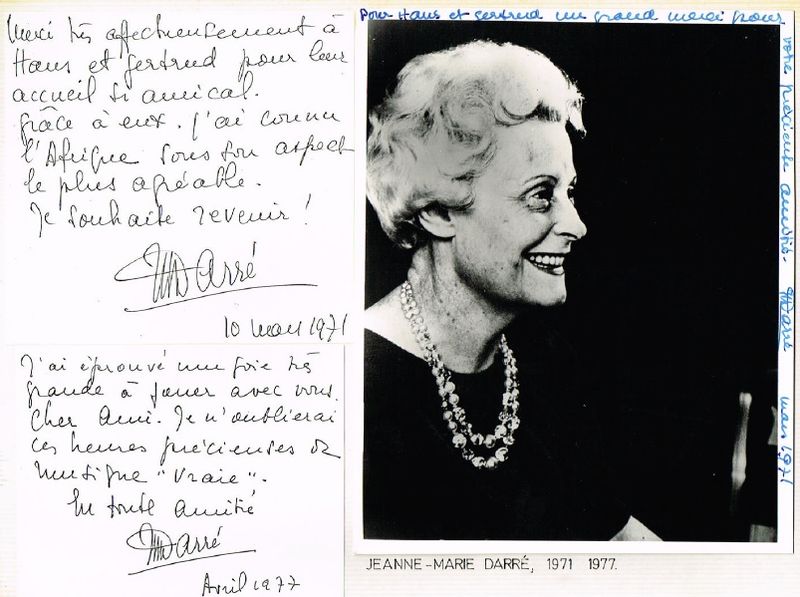 Merci très affectueusement à
Hans et Gertrud pour leur
accueil si amical.
grâce à eux. j'ai connu
l'Afrique sous son aspect
le plus agréable.
Je souhaite revenir !
JMDarré
10 mars 1971
J'ai éprouvé une joie très
grande à jouer avec vous
cher Ami. Je n'oublierai
ces heures précieuses de
musique "vraie".
En toute amitié
JMDarré
Avril 1977
Pour Hans et Gertrud un grand merci pour
votre précieuse amitié- JMDarré mars 1971
JEANNE-MARIE DARRÉ, 1971 1977.